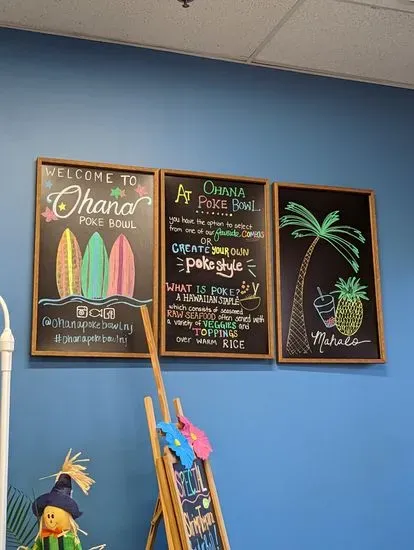 WELCOME TO
Ohana
POKE BOWL
@ohanapokebowlnj
#ohanapokebowlnj
At OHANA
POKE BOWL
you have the option to select
from one of our favorite COMBOS
OR
CREATE YOUR OWN
poke style
WHAT IS POKE?
A HAWAIIAN STAPLE
which consists of seasoned
RAW SEAFOOD often served with
a variety of VEGGIES and
TOPPINGS
over WARM RICE
Mahalo
SPECIAL